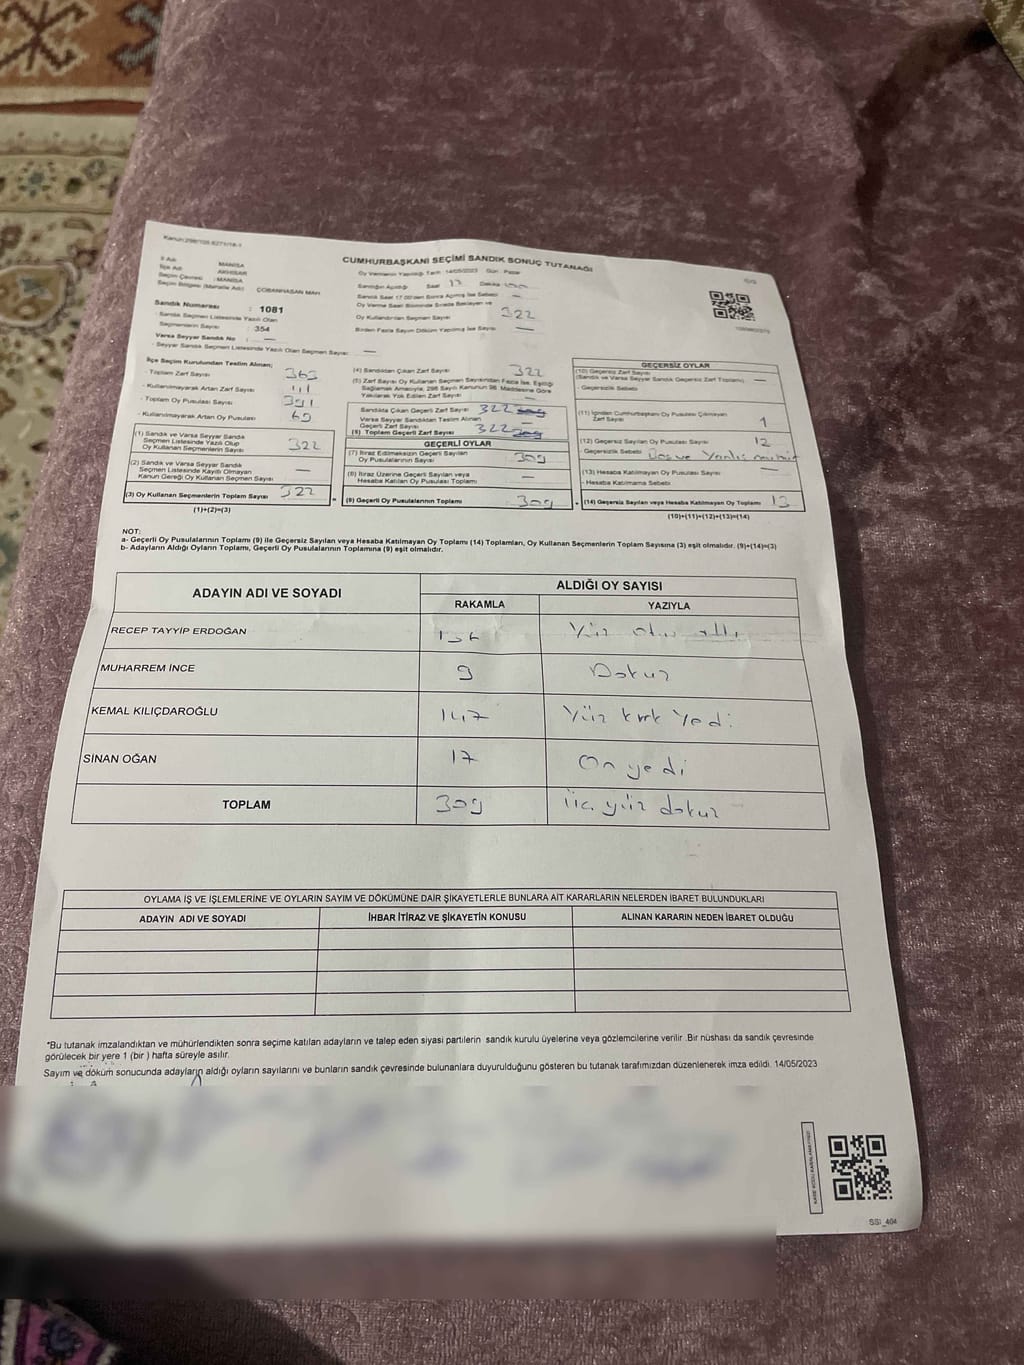 Kanun:298/105 6271/18-1
CUMHURBAŞKANI SEÇİMİ SANDIK SONUÇ TUTANAĞI
İl Adı : MANİSA
İlçe Adı : AKHİSAR
Seçim Çevresi : MANİSA
Seçim Bölgesi (Mahalle Adı) : ÇOBANHASAN MAH
Sandık Numarası : 1081
Sandık Seçmen Listesinde Yazılı Olan
Seçmenlerin Sayısı : 354
Varsa Seyyar Sandık No : —
Seyyar Sandık Listesinde Yazılı Olan Seçmen Sayısı : —
Oy Vermenin Yapıldığı Tarih : 14/05/2023 Gün : Pazar
Sandığın Açıldığı Saat 17 Dakika
Sandık Saat 17.00'den Sonra Açılmış İse Sebebi —
Oy Verme Saati Bitiminde Sırada Bekleyen ve
Oy Kullandırılan Seçmen Sayısı 322
Birden Fazla Sayım Döküm Yapılmış İse Sayısı —
İlçe Seçim Kurulundan Teslim Alınan;
- Toplam Zarf Sayısı 363
- Kullanılmayarak Artan Zarf Sayısı
- Toplam Oy Pusulası Sayısı 391
- Kullanılmayarak Artan Oy Pusulası 69
(1) Sandık ve Varsa Seyyar Sandık
Seçmen Listesinde Yazılı Olup
Oy Kullanan Seçmenlerin Sayısı 322
(2) Sandık ve Varsa Seyyar Sandık
Seçmen Listesinde Kayıtlı Olmayan
Kanun Gereği Oy Kullanan Seçmen Sayısı —
(3) Oy Kullanan Seçmenlerin Toplam Sayısı 322
(1)+(2)=(3)
(4) Sandıktan Çıkan Zarf Sayısı 322
(5) Zarf Sayısı Oy Kullanan Seçmen Sayısından Fazla İse, Eşitliği
Sağlamak Amacıyla, 298 Sayılı Kanunun 98. Maddesine Göre
Yakılarak Yok Edilen Zarf Sayısı —
Sandıkta Çıkan Geçerli Zarf Sayısı 322 309
Varsa Seyyar Sandıktan Teslim Alınan
Geçerli Zarf Sayısı —
(6) Toplam Geçerli Zarf Sayısı 322 309
GEÇERLİ OYLAR
(7) İtiraz Edilmeksizin Geçerli Sayılan
Oy Pusulalarının Sayısı 309
(8) İtiraz Üzerine Geçerli Sayılan veya
Hesaba Katılan Oy Pusulası Toplamı —
(9) Geçerli Oy Pusulalarının Toplamı 309
GEÇERSİZ OYLAR
(10) Geçersiz Zarf Sayısı
(Sandık ve Varsa Seyyar Sandık Geçersiz Zarf Toplamı) —
- Geçersizlik Sebebi
(11) İçinden Cumhurbaşkanı Oy Pusulası Çıkmayan
Zarf Sayısı 1
(12) Geçersiz Sayılan Oy Pusulası Sayısı 12
Geçersizlik Sebebi Boş ve Yanlış mühür
(13) Hesaba Katılmayan Oy Pusulası Sayısı —
- Hesaba Katılmama Sebebi
(14) Geçersiz Sayılan veya Hesaba Katılmayan Oy Toplamı 13
(10)+(11)+(12)+(13)=(14)
NOT:
a- Geçerli Oy Pusulalarının Toplamı (9) ile Geçersiz Sayılan veya Hesaba Katılmayan Oy Toplamı (14) Toplamları, Oy Kullanan Seçmenlerin Toplam Sayısına (3) eşit olmalıdır. (9)+(14)=(3)
b- Adayların Aldığı Oyların Toplamı, Geçerli Oy Pusulalarının Toplamına (9) eşit olmalıdır.
ADAYIN ADI VE SOYADI ALDIĞI OY SAYISI
RAKAMLA YAZIYLA
RECEP TAYYİP ERDOĞAN 136 Yüz otuz altı
MUHARREM İNCE 9 Dokuz
KEMAL KILIÇDAROĞLU 147 Yüz kırk Yedi
SİNAN OĞAN 17 On yedi
TOPLAM 309 Üç yüz dokuz
OYLAMA İŞ VE İŞLEMLERİNE VE OYLARIN SAYIM VE DÖKÜMÜNE DAİR ŞİKAYETLERLE BUNLARA AİT KARARLARIN NELERDEN İBARET BULUNDUKLARI
ADAYIN ADI VE SOYADI İHBAR İTİRAZ VE ŞİKAYETİN KONUSU ALINAN KARARIN NEDEN İBARET OLDUĞU
*Bu tutanak imzalandıktan ve mühürlendikten sonra seçime katılan adayların ve talep eden siyasi partilerin sandık kurulu üyelerine veya gözlemcilerine verilir .Bir nüshası da sandık çevresinde
görülecek bir yere 1 (bir ) hafta süreyle asılır.
Sayım ve döküm sonucunda adayların aldığı oyların sayılarını ve bunların sandık çevresinde bulunanlara duyurulduğunu gösteren bu tutanak tarafımızdan düzenlenerek imza edildi. 14/05/2023
SSI_404